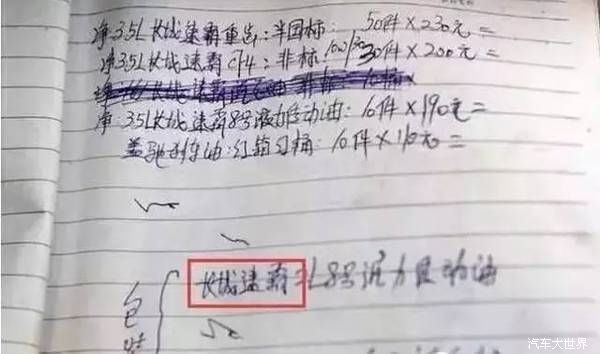 净:3.5L长城速霸重:半国标: 50件×230元=
净:3.5L长城速霸CF4:非标 100/30 30件×200元=
净:3.5L长城速霸8号液力传动油:10件×190元=
盖驰:红箱红桶:10件×110元=
长城速霸 8号液力 动油
包
汽车大世界